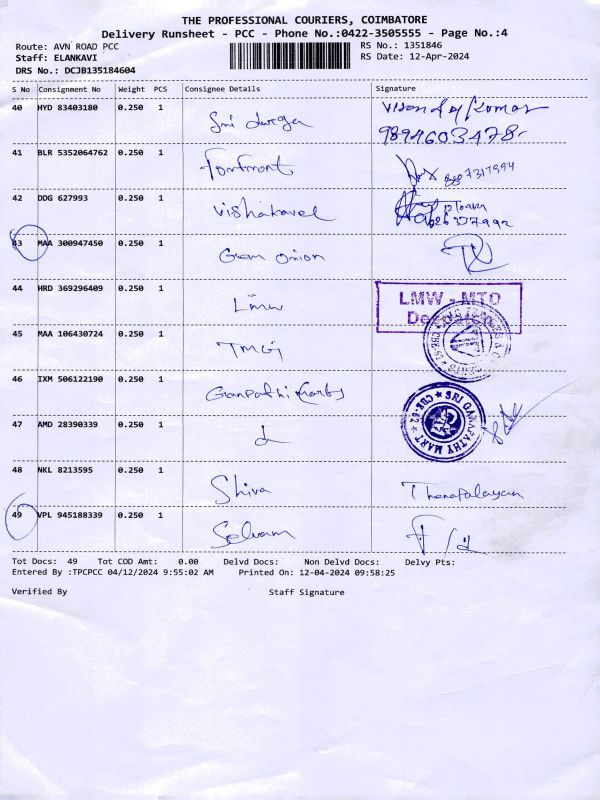 THE PROFESSIONAL COURIERS, COIMBATORE
Delivery Runsheet - PCC - Phone No.:0422-3505555 - Page No.:4
Route: AVN ROAD PCC
RS No.: 1351846
Staff: ELANKAVI
RS Date: 12-Apr-2024
DRS No.: DCJB135184604
S No Consignment No Weight PCS Consignee Details Signature
40 HYD 83403180 0.250 1 Sri durga
9894603478
41 BLR 5352064762 0.250 1 Forfront
42 DDG 627993 0.250 1 Vishakavel
43 MAA 300947450 0.250 1 Green onion
44 HRD 369296409 0.250 1 Lmw
LMW - MTD
45 MAA 106430724 0.250 1 TMG
46 IXM 506122190 0.250 1 Ganpathi
SRI GANAPATHY MART
47 AMD 28390339 0.250 1
48 NKL 8213595 0.250 1 Shiva
49 VPL 945188339 0.250 1 Selvam
Tot Docs: 49 Tot COD Amt: 0.00 Delvd Docs: Non Delvd Docs: Delvy Pts:
Entered By :TPCPCC 04/12/2024 9:55:02 AM Printed On: 12-04-2024 09:58:25
Verified By Staff Signature